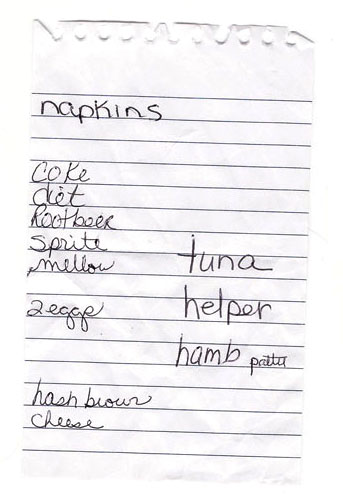 napkins
Coke
diet
Rootbeer
Sprite
mellow
2 eggs
hash brown
cheese
tuna
helper
hamb patty